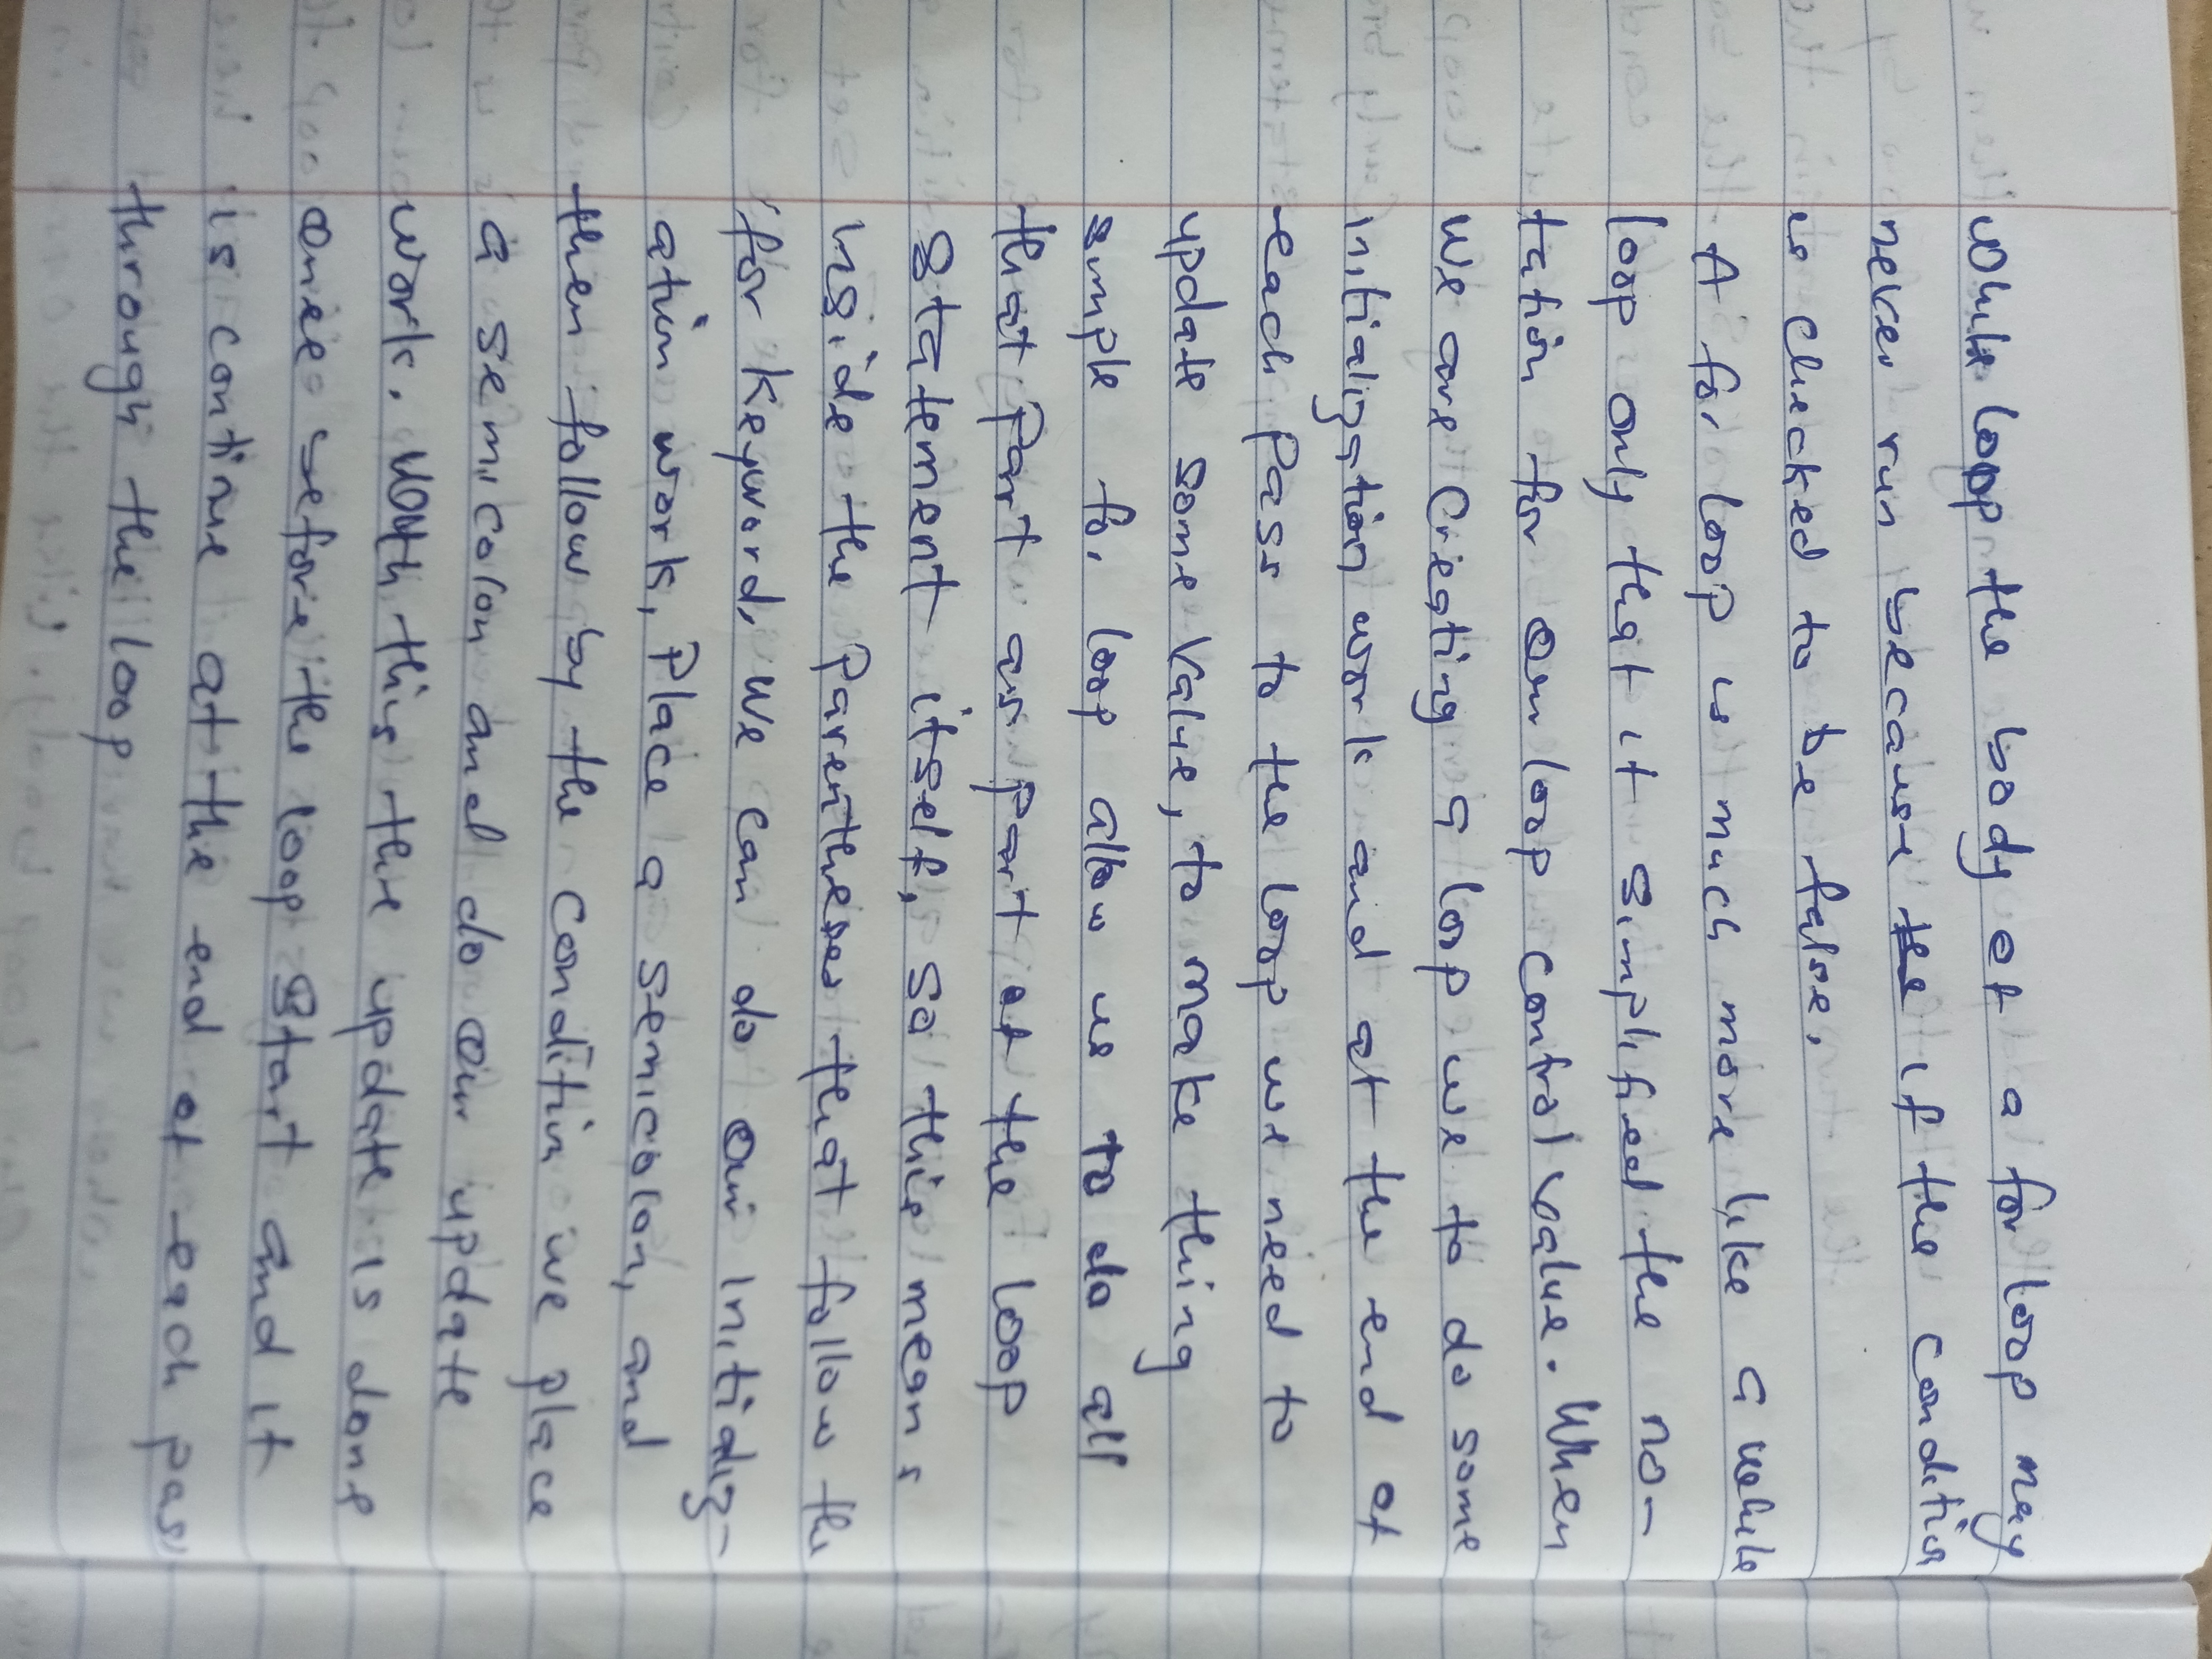 While loop the body of a for loop may
never run because the if the condition
is checked to be false.
A for loop is much more like a while
loop only that it simplified the no-
tation for our loop control value. When
we are creating a loop we to do some
initialization work and at the end of
each pass to the loop we need to
update some value, to make thing
simple for loop allow us to do all
that part as part of the loop
statement itself, so this means
inside the parentheses that follow the
for keyword, we can do our initializ-
ation work, place a semicolon, and
then follow by the condition we place
a semicolon and do our update
work. With this the update is done
once before the loop start and it
is continue at the end of each pass
through the loop